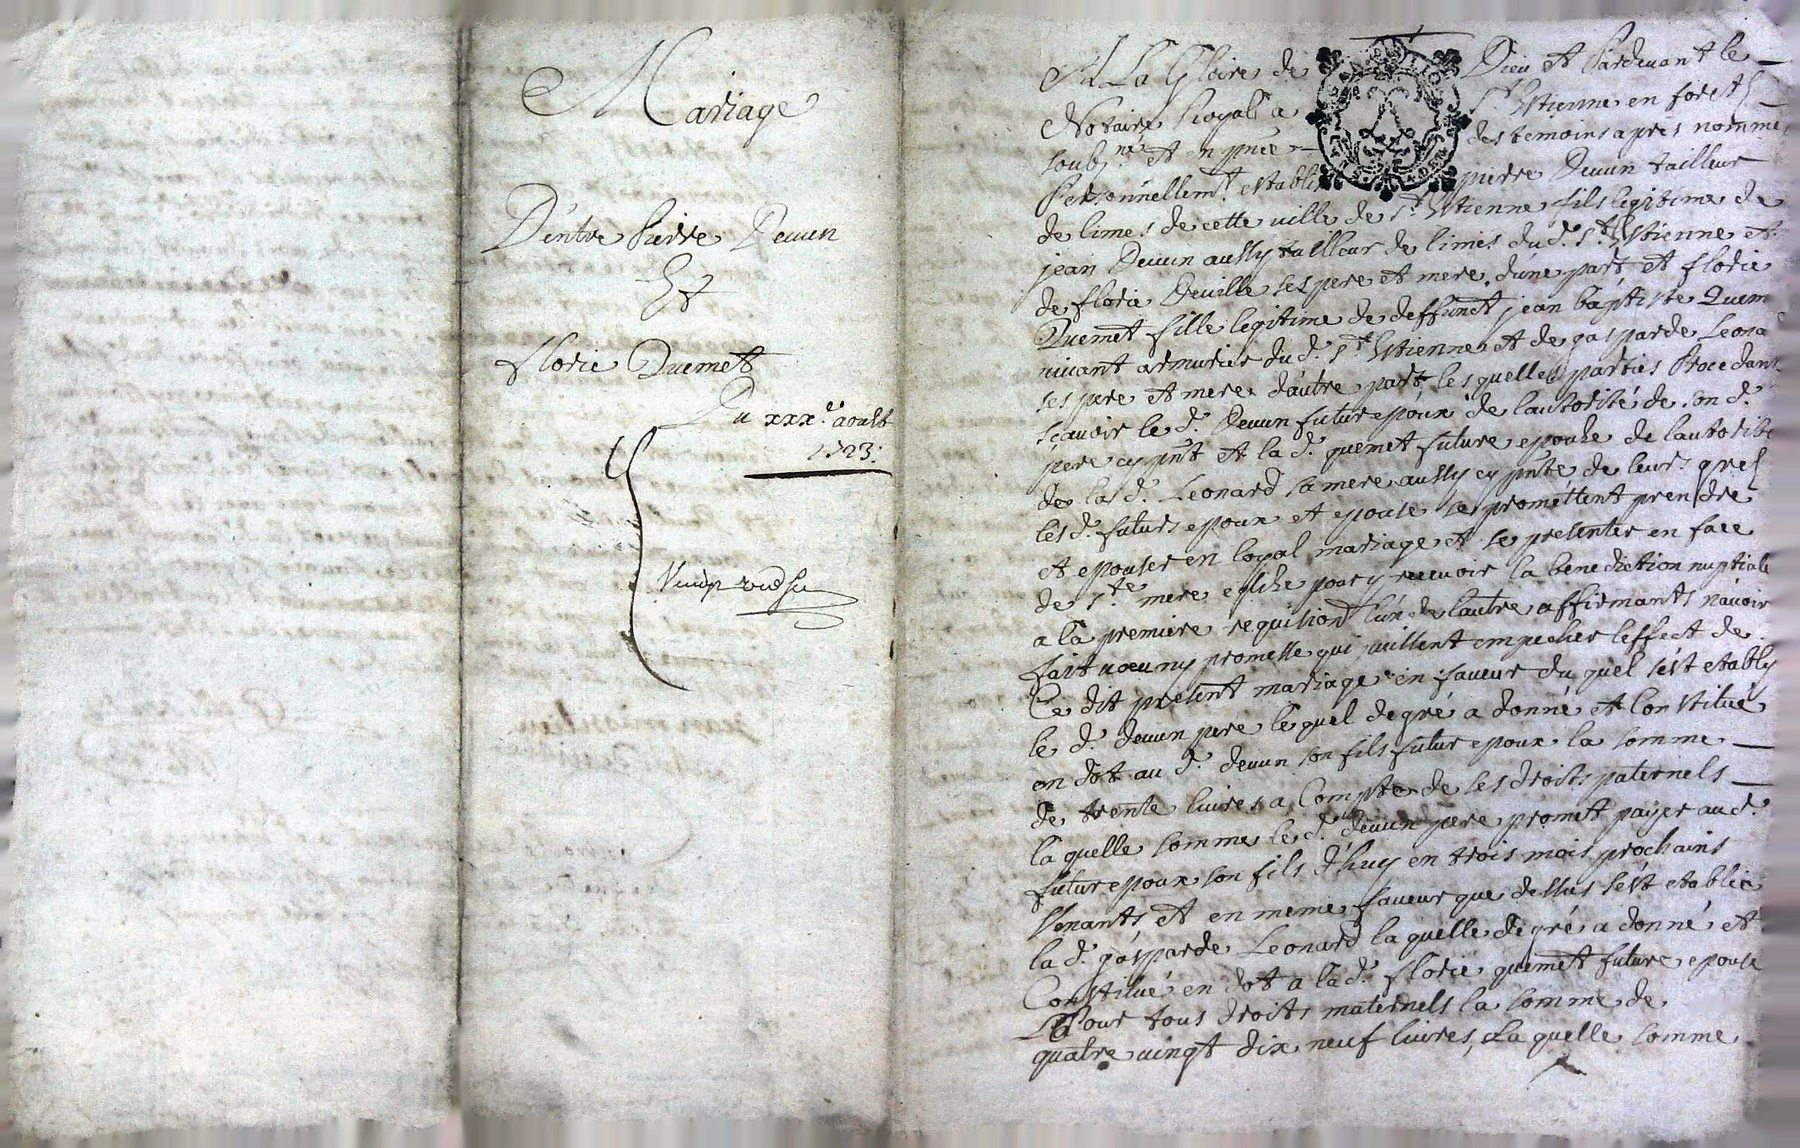 Mariage
D'entre Pierre Devun
Et
florie Quemet
Du xxx.e aoust
1723.
A La Gloire de Dieu et Pardevant le
Notaire Royal a St Estienne en forets
soubz.né et en pnce des temoins apres nommés
Personnellemt. establi pierre Devun tailleur
de limes de cette ville de St. Estienne fils legitime de
jean Devun aussy tailleur de limes du d. St. Estienne et
de florie Deville ses pere et mere d'une part et florie
Quemet fille legitime de deffunct jean baptiste Quem
vivant armurier du d. St. Estienne et de gasparde Leona
ses pere et mere d'autre part lesquelles parties Procedant
sçavoir le d. Devun futur epoux de lautorité de son d.
pere cy pnt et la d. quemet future epouse de lautorité
de la d. Leonard sa mere aussy cy pnte de leurs grés
les d. futurs epoux et epouse se promettent prendre
et epouser en loyal mariage et se presenter en face
de Ste. mere eglise pour y recevoir la benediction nuptiale
a la premiere requisition l'un de lautre affirmants n'avoir
fait voeu ny promesse qui puissent empecher leffect de
Ce dit present mariage en faveur du quel s'est etably
le d. devun pere lequel de gré a donné et Constitué
en dot au d. devun son fils futur epoux la somme
de trente livres a Compte de ses droits paternels
la quelle somme le d. devun pere promet payer au d.
futur epoux son fils d'huy en trois mois prochains
Venants et en meme faveur que dessus s'est establie
la d. gasparde Leonard la quelle de gré a donné et
Constitué en dot a la d. florie quemet future epouse
Pour tous droits maternels la somme de
quatre vingt dix neuf livres, La quelle somme